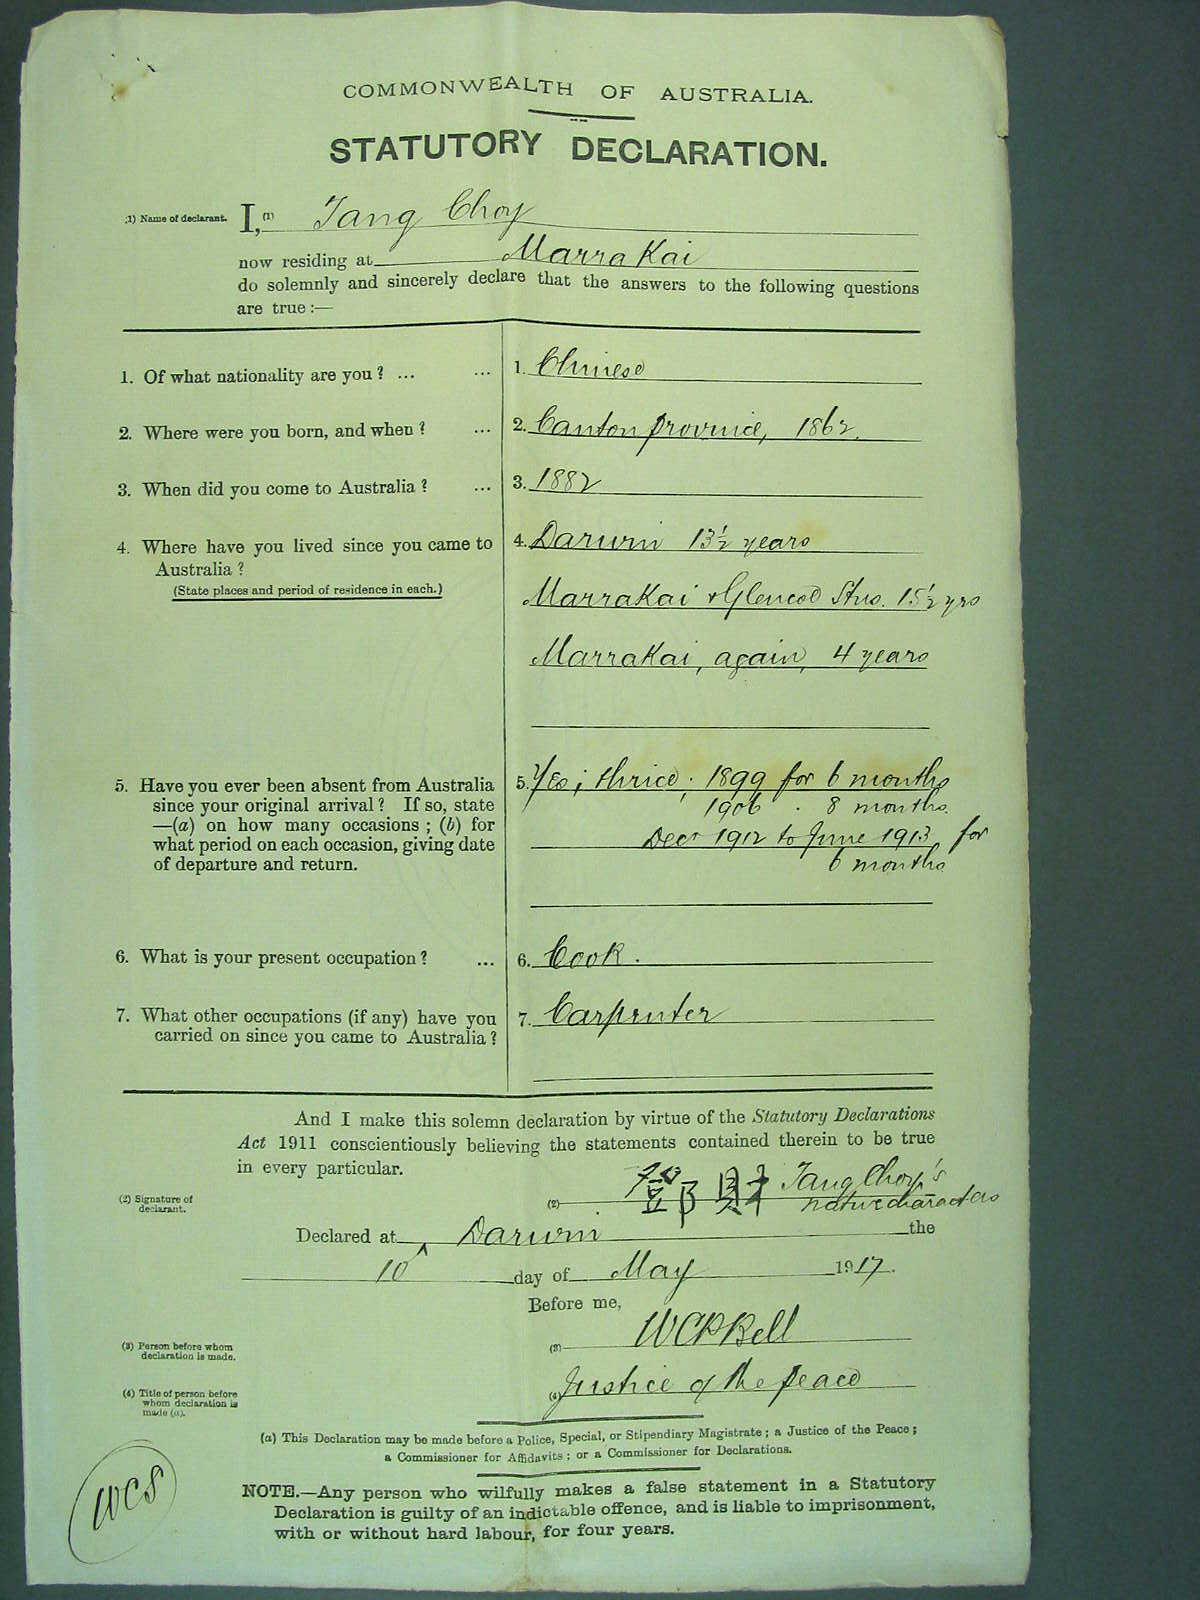 COMMONWEALTH OF AUSTRALIA.
STATUTORY DECLARATION.
(1) Name of declarant. I,(1) Tang Choy
now residing at Marrakai
do solemnly and sincerely declare that the answers to the following questions
are true :—
1. Of what nationality are you ? ... ... 1. Chinese
2. Where were you born, and when ? ... 2. Canton province, 1862.
3. When did you come to Australia ? ... 3. 1882
4. Where have you lived since you came to 4. Darwin 13½ years
Australia ?
(State places and period of residence in each.)
Marrakai & Glencoe Stns. 15½ yrs
Marrakai, again, 4 years
5. Have you ever been absent from Australia 5. Yes; thrice; 1899 for 6 months
since your original arrival ? If so, state 1906 . 8 months.
—(a) on how many occasions ; (b) for Decr 1912 to June 1913 for
what period on each occasion, giving date
of departure and return. 6 months
6. What is your present occupation ? ... 6. Cook.
7. What other occupations (if any) have you 7. Carpenter
carried on since you came to Australia ?
And I make this solemn declaration by virtue of the Statutory Declarations
Act 1911 conscientiously believing the statements contained therein to be true
in every particular.
(2) Signature of
declarant.
(2) 鄧財 Tang Choy's
native characters
Declared at Darwin the
10 day of May 1917.
Before me,
(3) Person before whom
declaration is made.
(3) WCPBell
(4) Title of person before
whom declaration is
made (a).
(4) Justice of the peace
(a) This Declaration may be made before a Police, Special, or Stipendiary Magistrate ; a Justice of the Peace ;
a Commissioner for Affidavits ; or a Commissioner for Declarations.
WCS
NOTE.—Any person who wilfully makes a false statement in a Statutory
Declaration is guilty of an indictable offence, and is liable to imprisonment,
with or without hard labour, for four years.